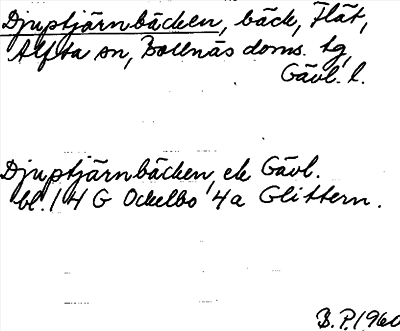 Djuptjärnbäcken, bäck, Flät,
Alfta sn, Bollnäs doms. tg,
Gävl. l.
Djuptjärnbäcken, ek Gävl.
bl. 14 G Ockelbo 4a Glittern.
B.P. 1960